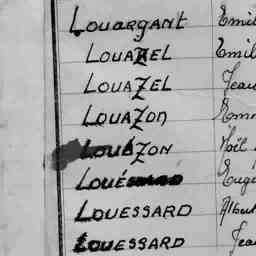 LOUARGANT Emil
LOUAZEL Emil
LOUAZEL Jean
LOUAZON
LOUAZON Noël
LOUÉ Eugè
LOUESSARD Albert
LOUESSARD Jea